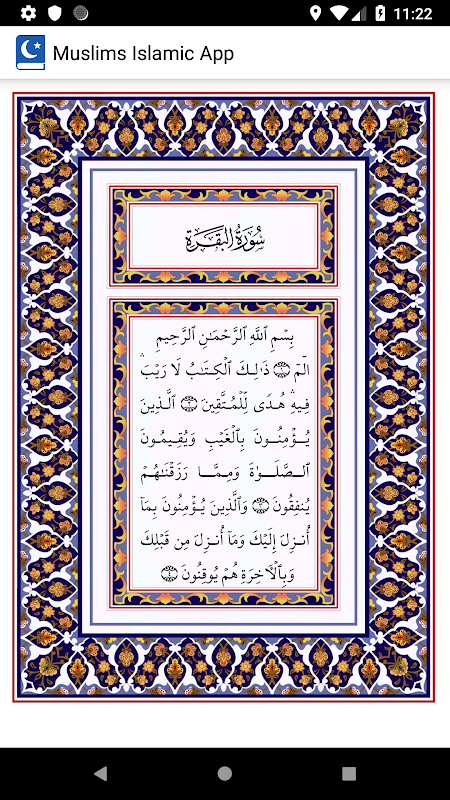 11:22
Muslims Islamic App
سُورَةُ البَقَرَةِ
بِسْمِ ٱللَّهِ ٱلرَّحْمَـٰنِ ٱلرَّحِيمِ
الٓمٓ ١ ذَٰلِكَ ٱلْكِتَـٰبُ لَا رَيْبَ ۛ
فِيهِ ۛ هُدًى لِّلْمُتَّقِينَ ٢ ٱلَّذِينَ
يُؤْمِنُونَ بِٱلْغَيْبِ وَيُقِيمُونَ
ٱلصَّلَوٰةَ وَمِمَّا رَزَقْنَـٰهُمْ
يُنفِقُونَ ٣ وَٱلَّذِينَ يُؤْمِنُونَ بِمَآ
أُنزِلَ إِلَيْكَ وَمَآ أُنزِلَ مِن قَبْلِكَ
وَبِٱلْـَٔاخِرَةِ هُمْ يُوقِنُونَ ٤